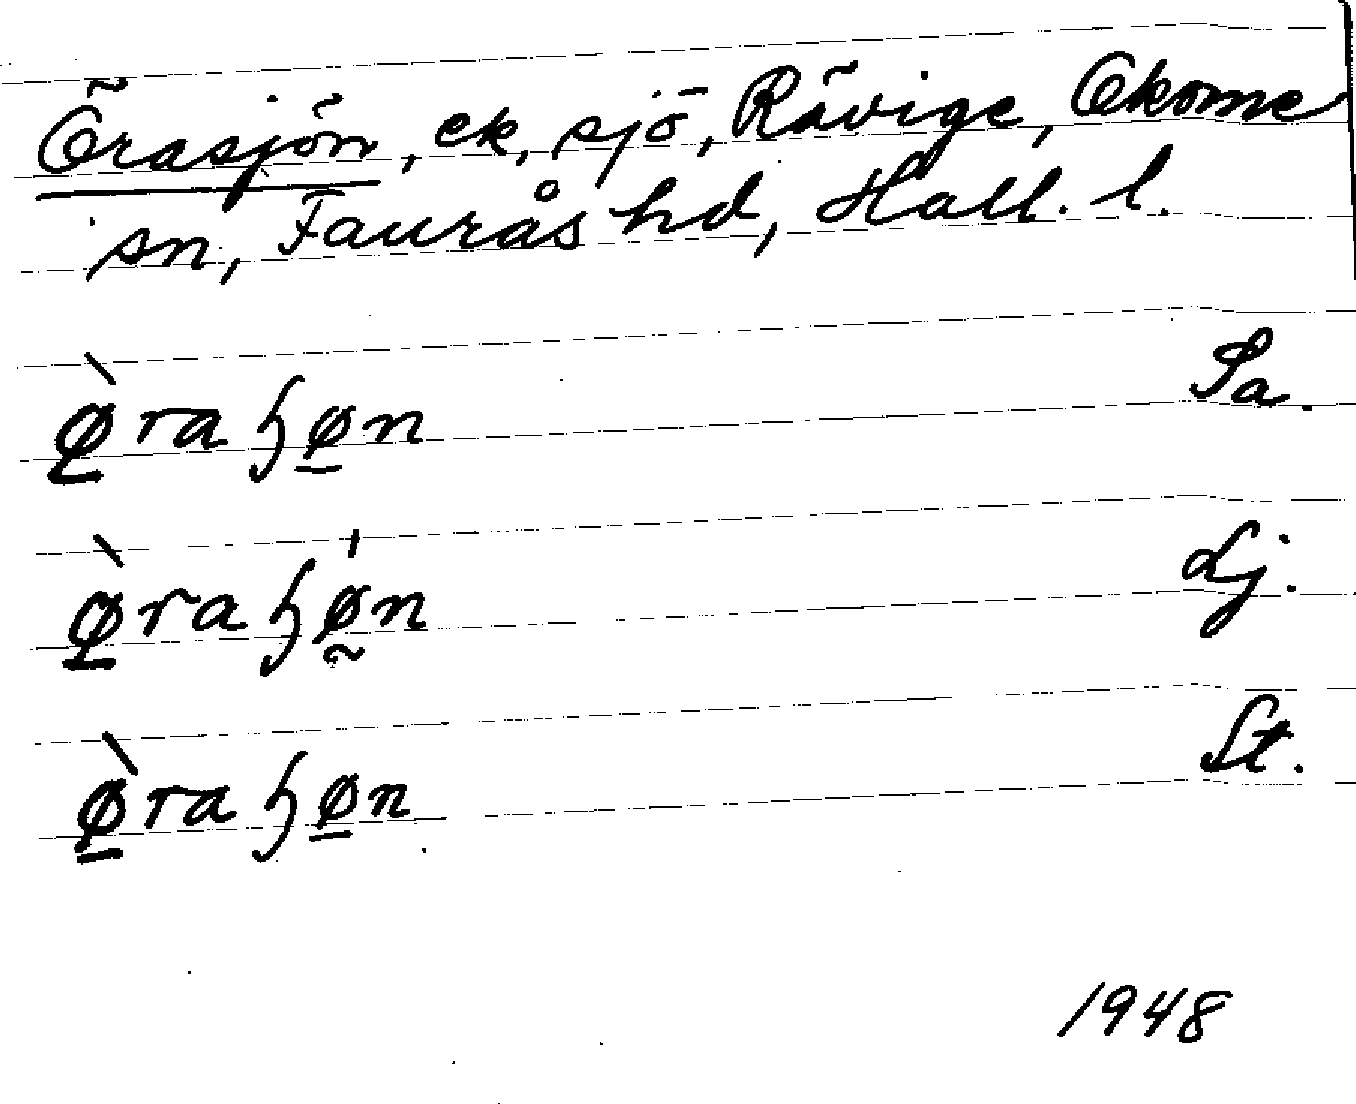 Örasjön, ek, sjö, Rävige, Okome
sn, Faurås hd, Hall. l.
ø̱̀raɧø̱n Sa.
ø̱̀raɧǿ̰n Lj.
ø̱̀raɧø̱n St.
1948